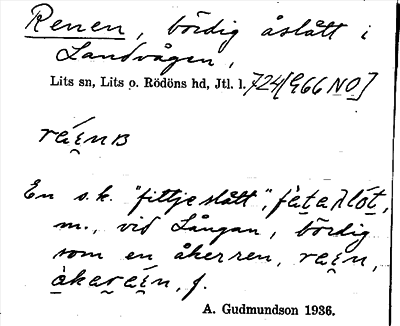 Renen, bördig åslått i
Landvågen,
Lits sn, Lits o. Rödöns hd, Jtl. l. 724[966 NO]
ráe̬nB
En s.k. "fittjeslått",
m., vid Långan, bördig
som en åkerren, raen,
f.
A. Gudmundson 1936.